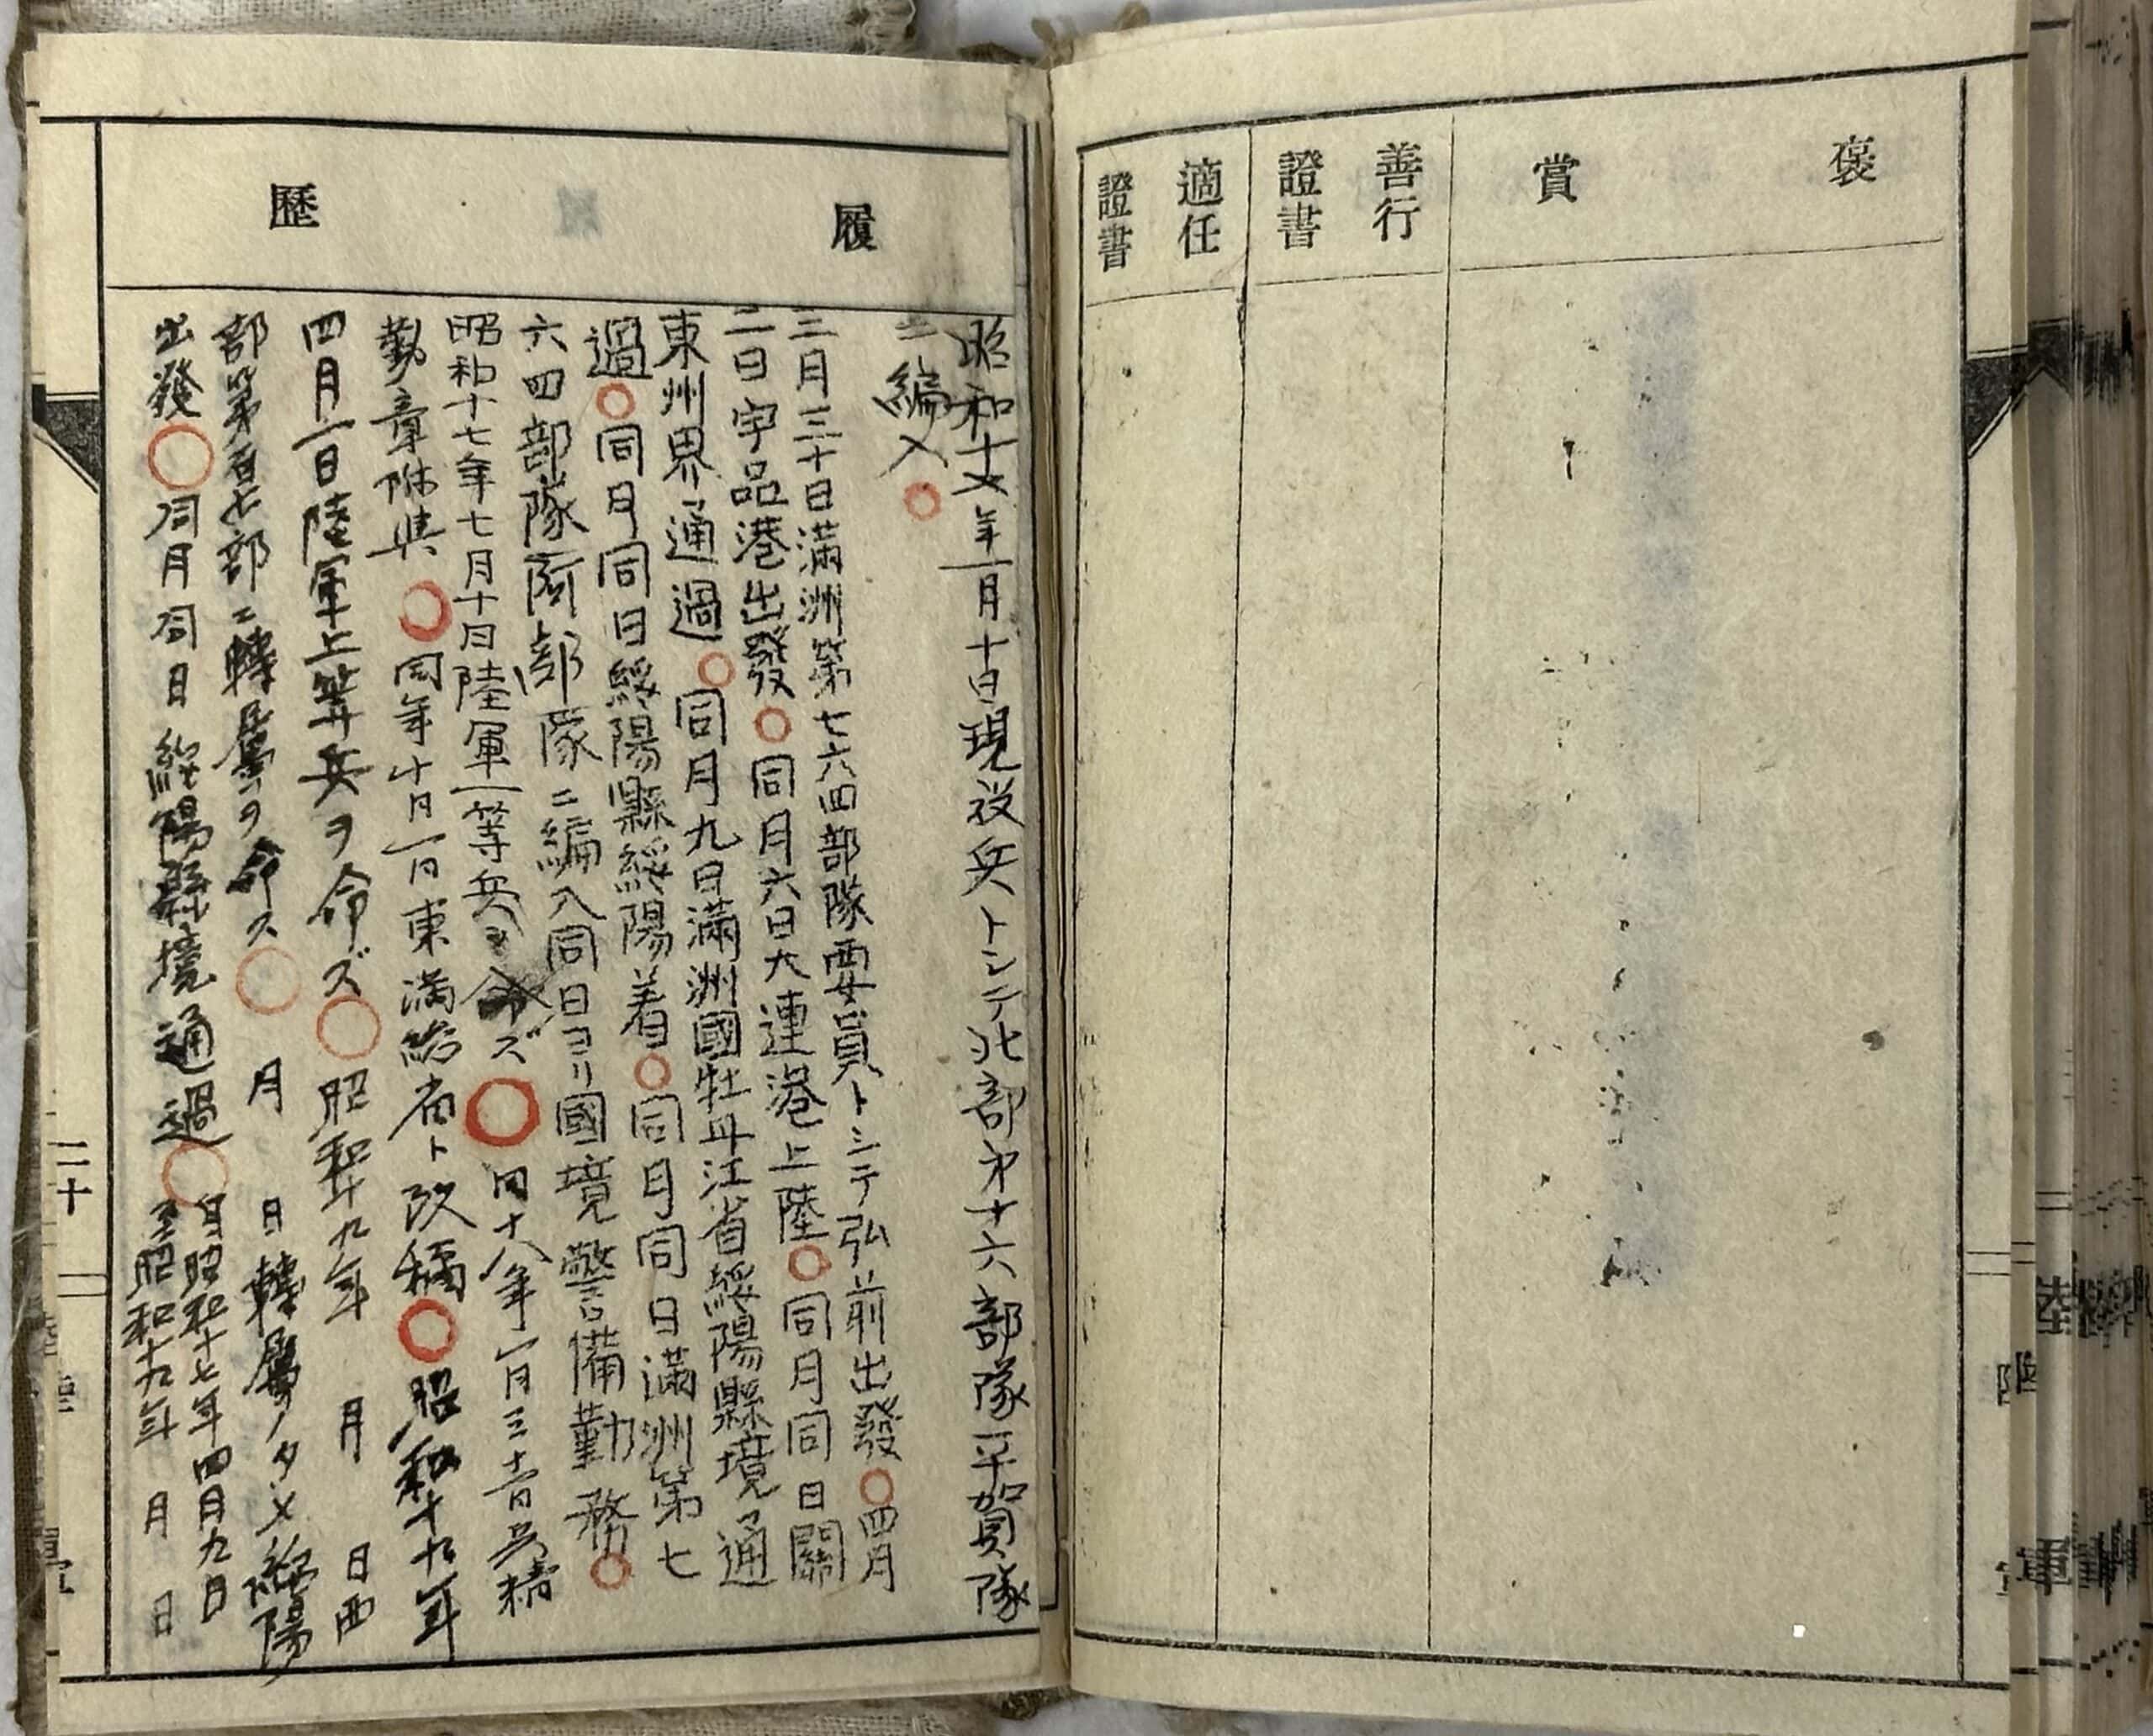 褒賞
善行證書
適任證書
履歴
昭和十七年一月十日現役兵トシテ北部第十六部隊平賀隊
ニ編入○
三月三十日滿洲第七六四部隊要員トシテ弘前出發○四月
二日宇品港出發○同月六日大連港上陸○同月同日關
東州界通過○同月九日滿洲國牡丹江省綏陽縣境通
過○同月同日綏陽縣綏陽着○同月同日滿洲第七
六四部隊 部隊ニ編入同日ヨリ國境警備勤務○
昭和十七年七月十日陸軍一等兵ヲ命ズ○同十八年 月三十 日 精
勤章附與○同年十月一日東滿 省ト改稱○昭和十九年
四月一日陸軍上等兵ヲ命ズ○昭和十九年 月 日西
部第百七部ニ轉屬ヲ命ス○ 月 日轉屬ノタメ綏陽
出發○同月同日綏陽縣境通過○
自昭和十七年四月九日
至昭和十九年 月 日
二十
陸軍